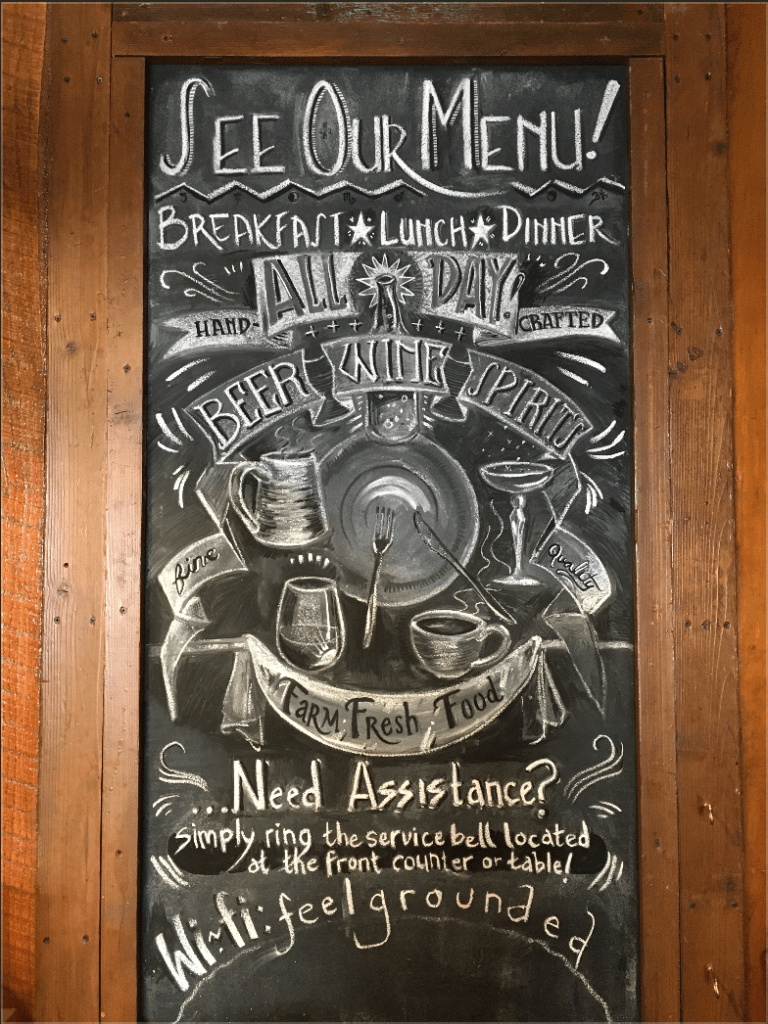 See Our Menu!
Breakfast ★ Lunch ★ Dinner
All Day!
Hand-Crafted
Beer Wine Spirits
fine Quality
Farm Fresh Food
...Need Assistance?
simply ring the service bell located
at the front counter or table!
Wi-fi: feelgrounded